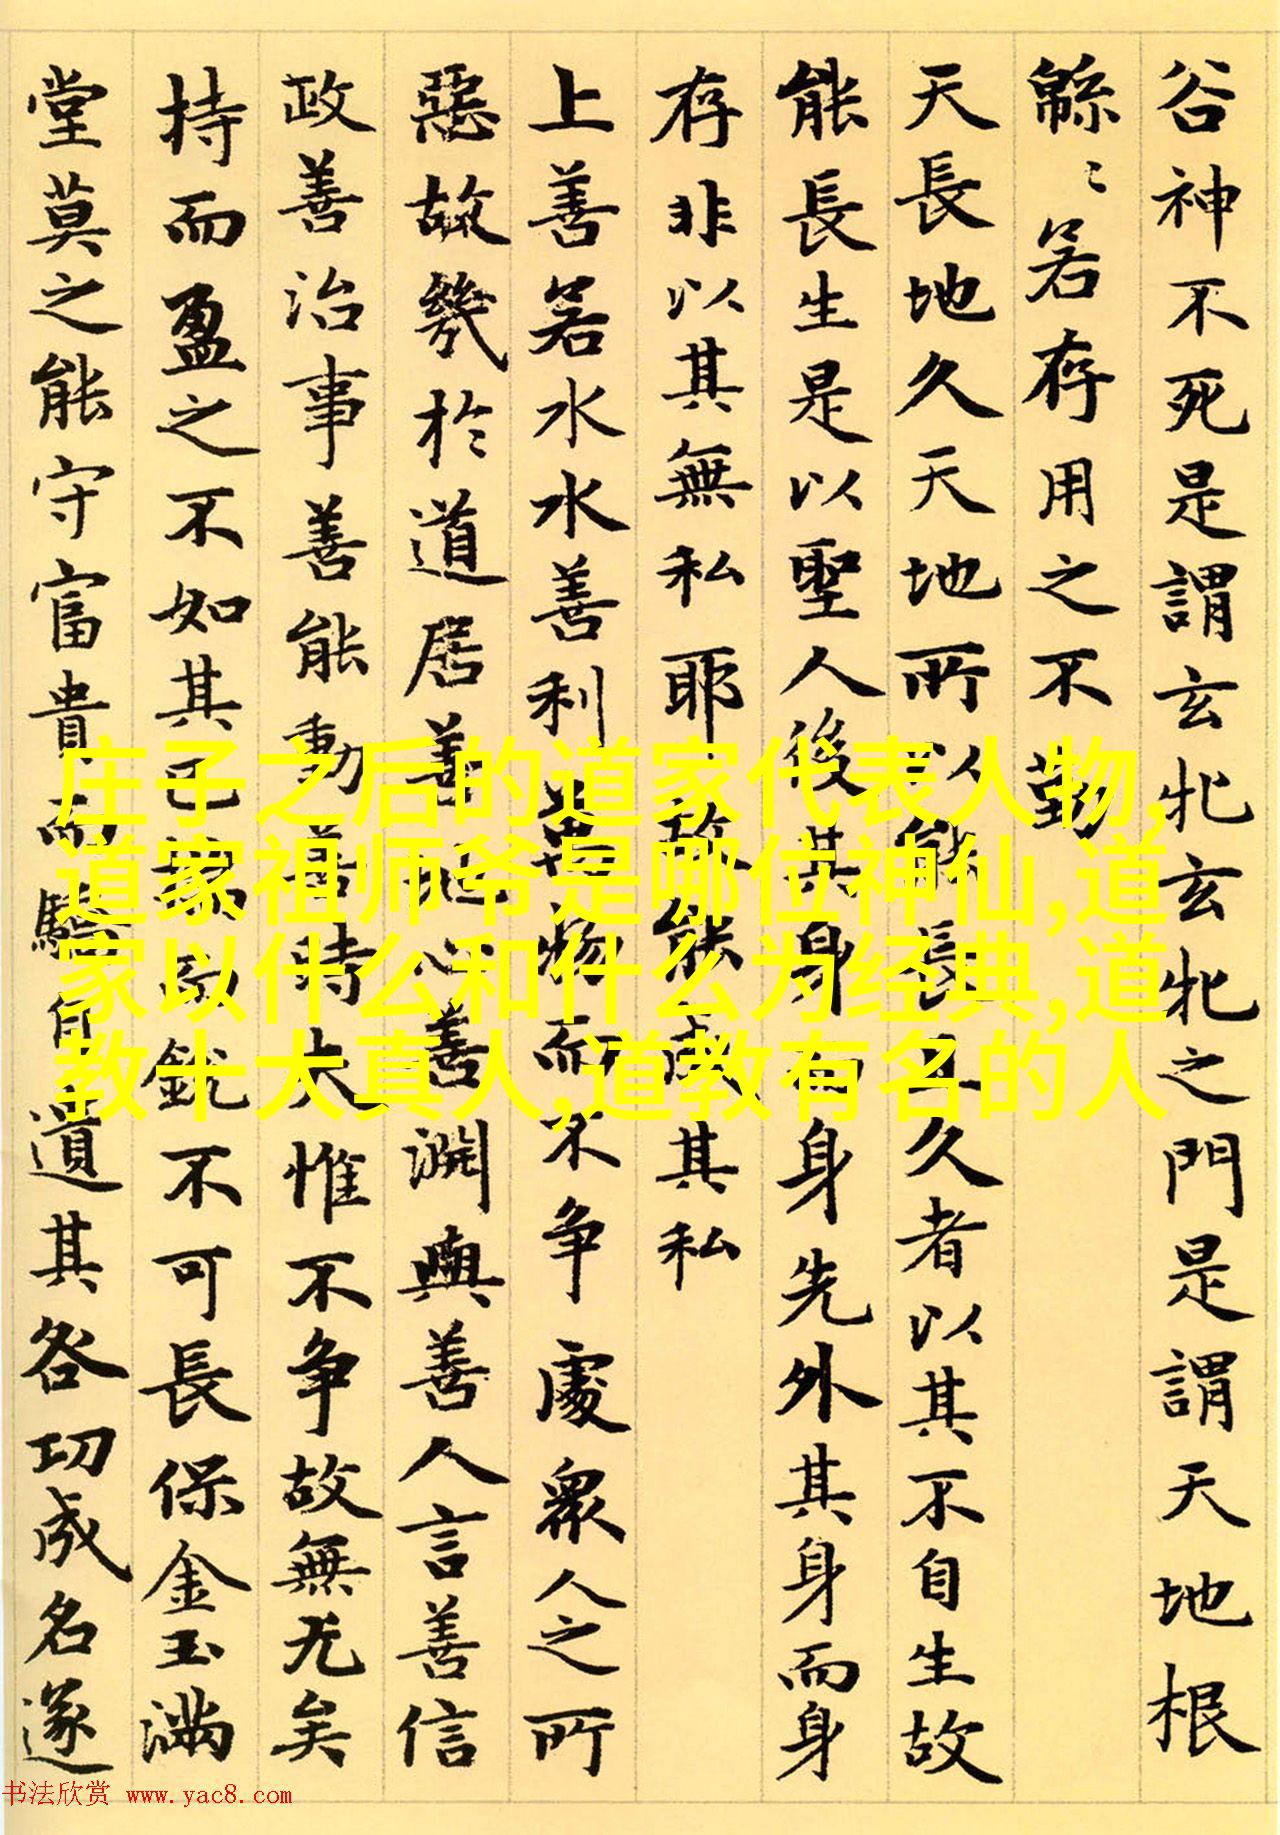 谷神不死是謂玄牝玄牝之門是謂天地根
緜〻若存用之不勤
天長地久天地所以能長且久者以其不自生故
能長生是以聖人後其身而身先外其身而身
存非以其無私耶故能成其私
上善若水水善利萬物而不争處衆人之所
惡故幾於道居善地心善淵與善人言善信
政善治事善能動善時夫惟不争故無尤矣
持而盈之不如其已揣而銳不可長保金玉滿
堂莫之能守富貴而驕自遺其咎功成名遂
庄子之后的道家代表人物,
道家祖师爷是哪位神仙,道
家以什么和什么为经典,道
教十大真人,道教有名的人
书法欣赏 www.yac8.com